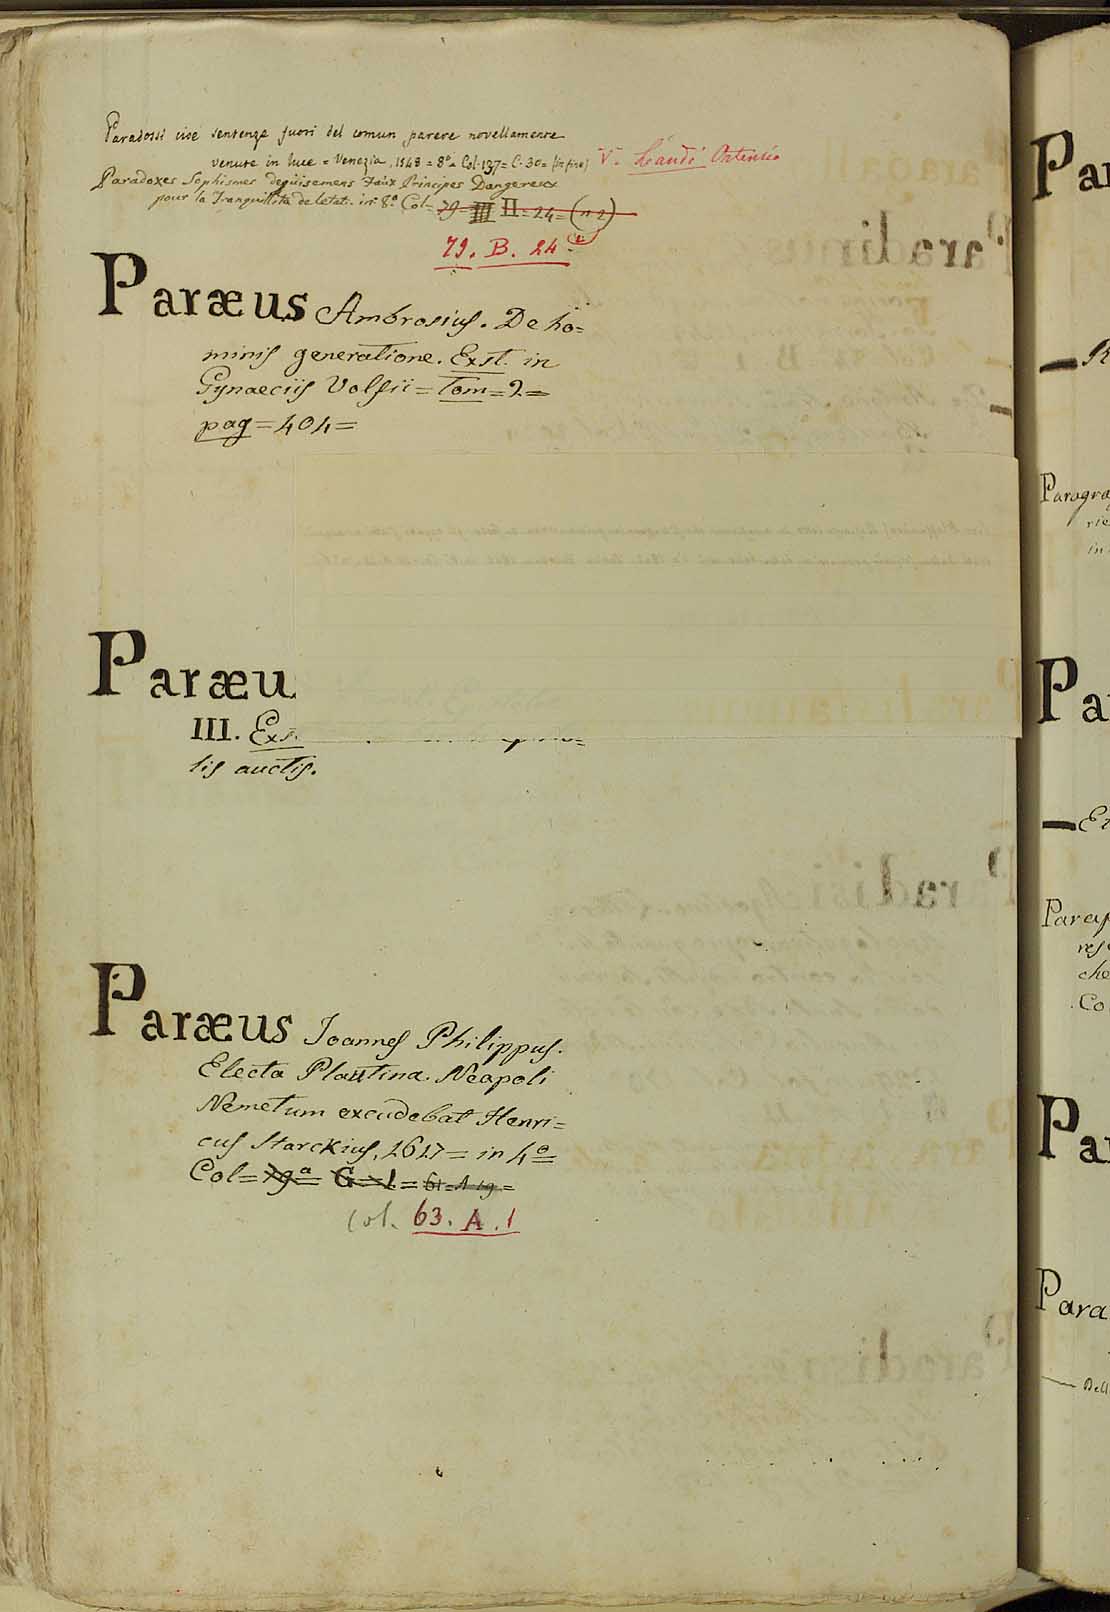 Paradossi cioé sentenze fuori del comun parere novellamente
venute in luce = Venezia, 1543 = 8º = Col. 137 = C. 30 = (in fine) V. Landi Ortensio
Paradoxes Sophismes deguisemens Faux Principes Dangereux
pour la Tranquillité de letat. in 8.º Col = 79 = III II = 24 = (n 2)
79. B. 24
Paræus Ambrosius. De ho=
minis generatione. Exst. in
Gynaeciis Volfii = Tom = 2 =
pag = 404 =
Paræu
III. Exs.
lis auctis.
Paræus Joannes Philippus.
Electa Plautina. Neapoli
Nemetum excudebat Henri=
cus Starckius, 1617 = in 4º =
Col = 79ª = G = 1 = 61 = A 19 =
Col. 63. A. 1
Par
Paragra
rie
in
Pa
Er
Paraf
res
che
Co
Par
Para
Dell